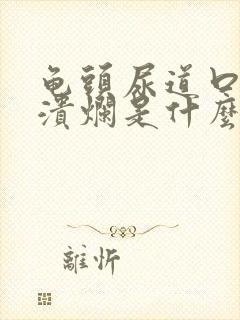 龟頭尿道口
潰爛是什麼
離忻